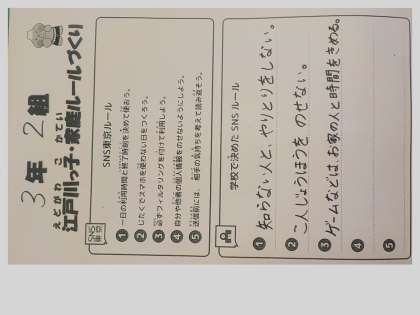 3年 2組
えどがわ こ かてい
江戸川っ子・家庭ルールづくり
SNS東京ルール
1 一日の利用時間と終了時刻を決めて使おう。
2 じたくでスマホを使わない日をつくろう。
3 必ずフィルタリングを付けて利用しよう。
4 自分や他者の個人情報をのせないようにしよう。
5 送信前には、相手の気持ちを考えて読み返そう。
学校で決めた SNS ルール
1 知らない人と、やりとりをしない。
2 こ人じょうほうを のせない。
3 ゲームなどは、お家の人と時間をきめる。
4
5